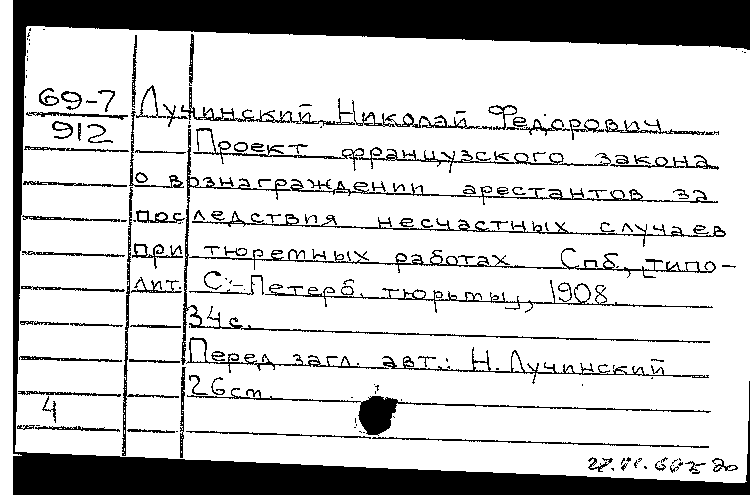 69-7 Лучинский, Николай Федорович
912 Проект французского закона
о вознаграждении арестантов за
последствия несчастных случаев
при тюремных работах Спб., типо-
лит. С.-Петерб. тюрьмы, 1908.
34 с.
Перед загл. авт.: Н. Лучинский
26 см.
4